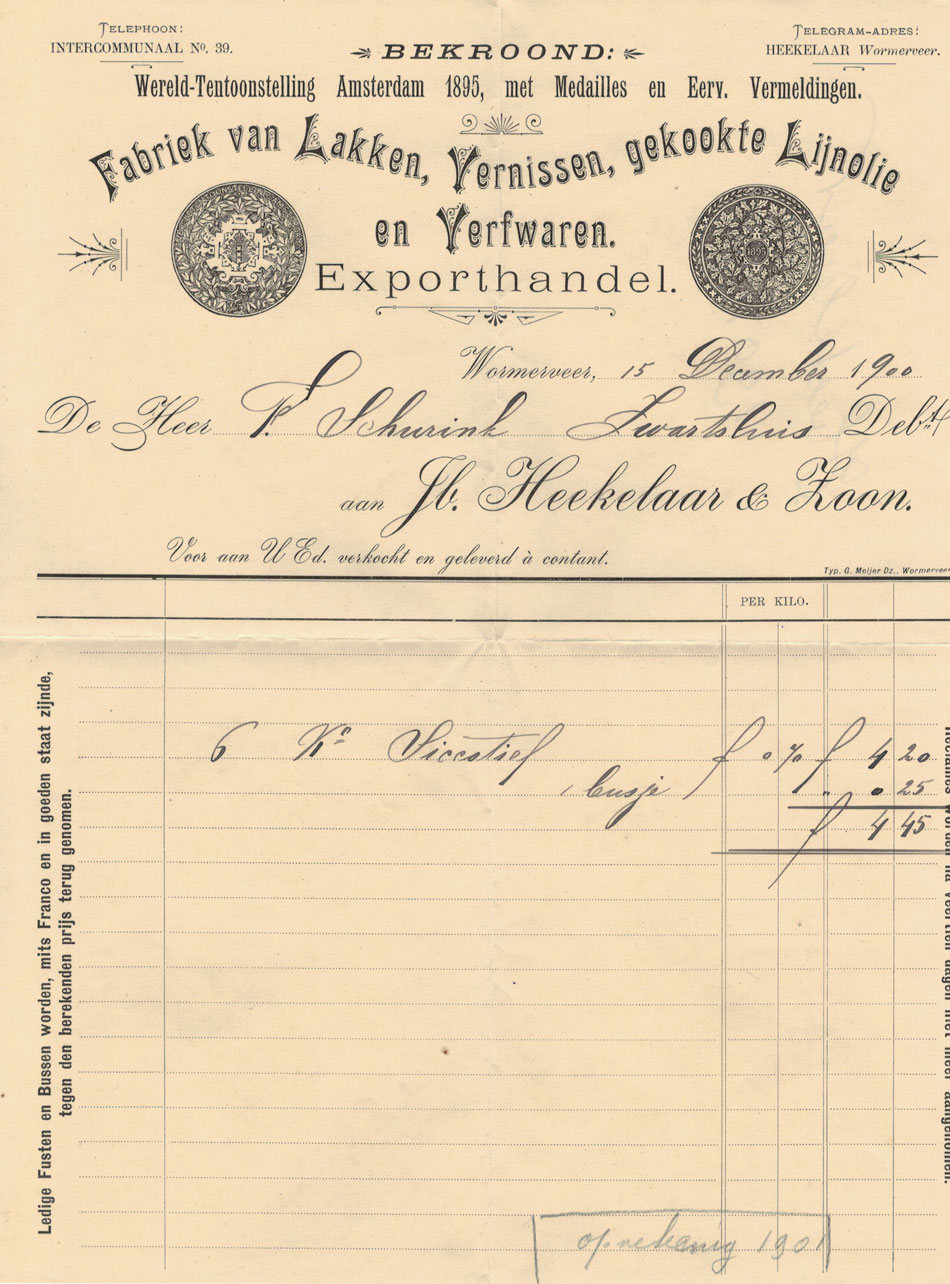 TELEPHOON:
INTERCOMMUNAAL No. 39.
TELEGRAM-ADRES:
HEEKELAAR Wormerveer.
BEKROOND:
Wereld-Tentoonstelling Amsterdam 1895, met Medailles en Eerv. Vermeldingen.
Fabriek van Lakken, Vernissen, gekookte Lijnolie
en Verfwaren.
Exporthandel.
Wormerveer, 15 December 1900
De Heer F. Schurink Zwartsluis Debt.
aan Jb. Heekelaar & Zoon.
Voor aan U Ed. verkocht en geleverd à contant.
Typ. G. Meijer Dz., Wormerveer
PER KILO.
6 Ko Siccatief f 0 70 f 4 20
1 busje " 0 25
f 4 45
Ledige Fusten en Bussen worden, mits Franco en in goeden staat zijnde,
tegen den berekenden prijs terug genomen.
worden na veertien dagen niet meer aangenomen.
op rekenig 1901